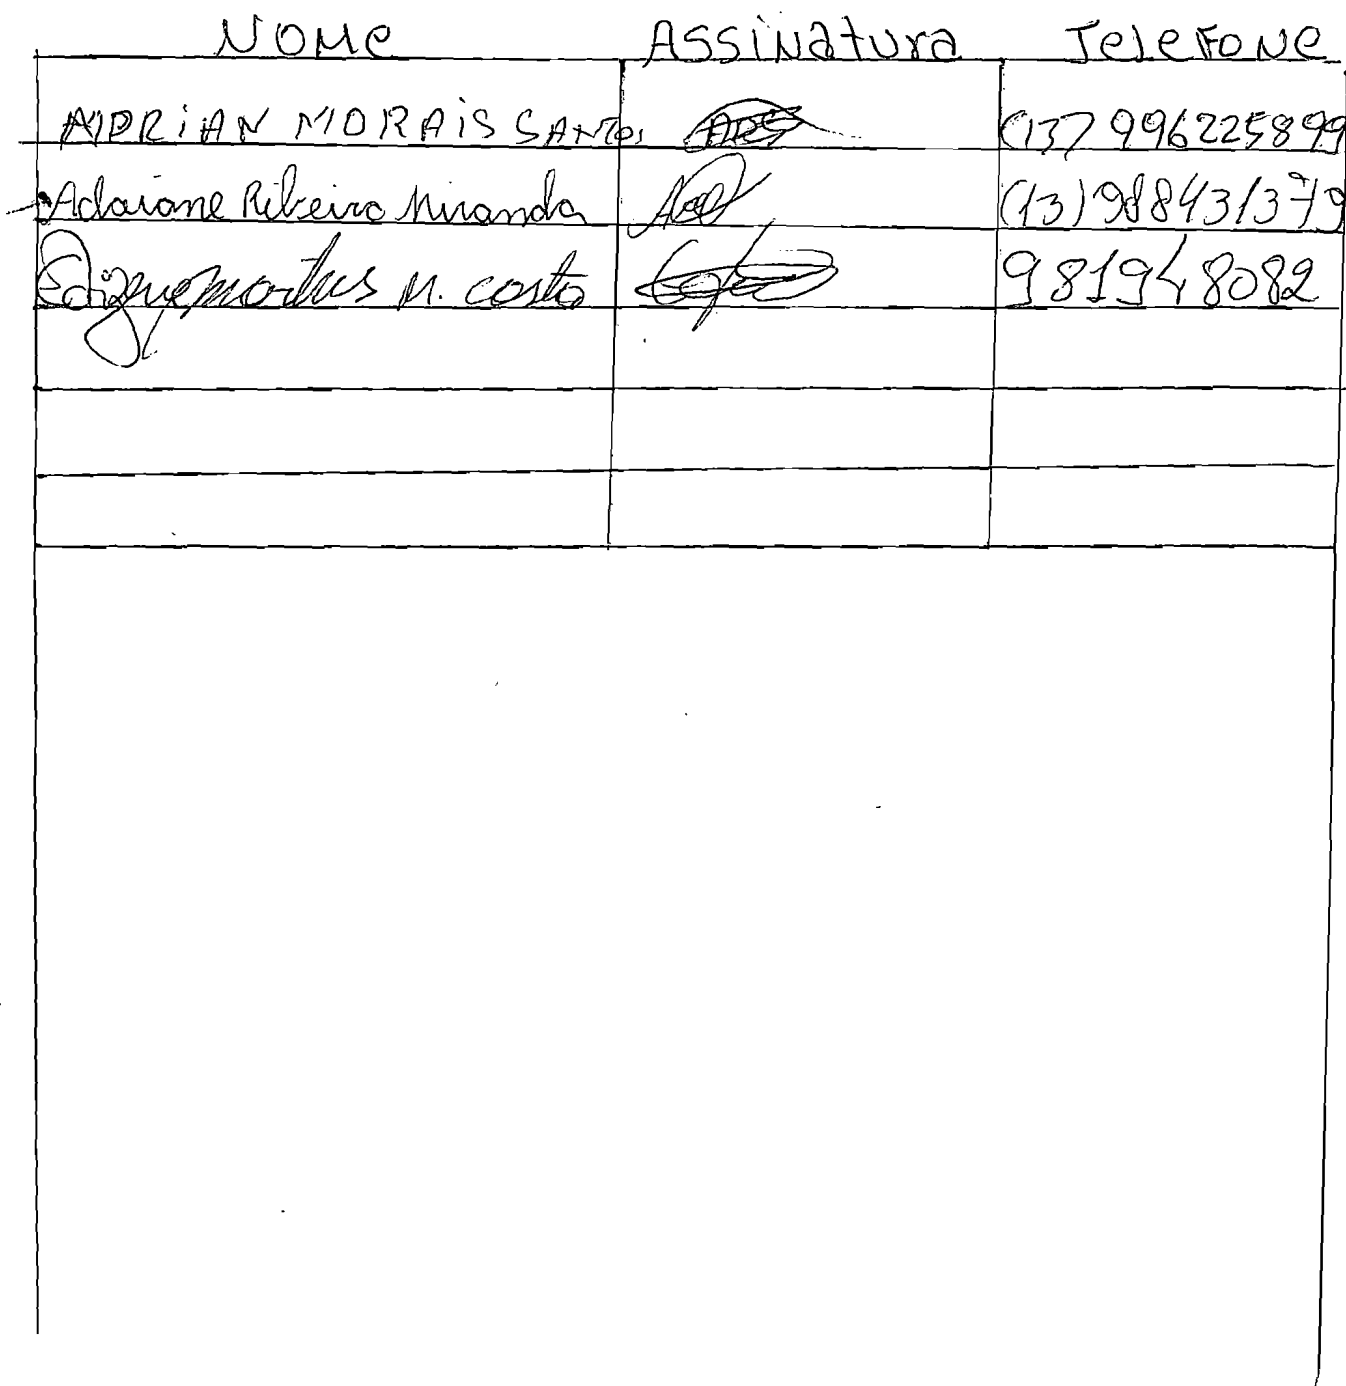 Nome Assinatura Telefone
ADRIAN MORAIS SANTOS (13) 996225899
Adaiane Ribeiro Miranda (13) 988431379
M. costa 981948082